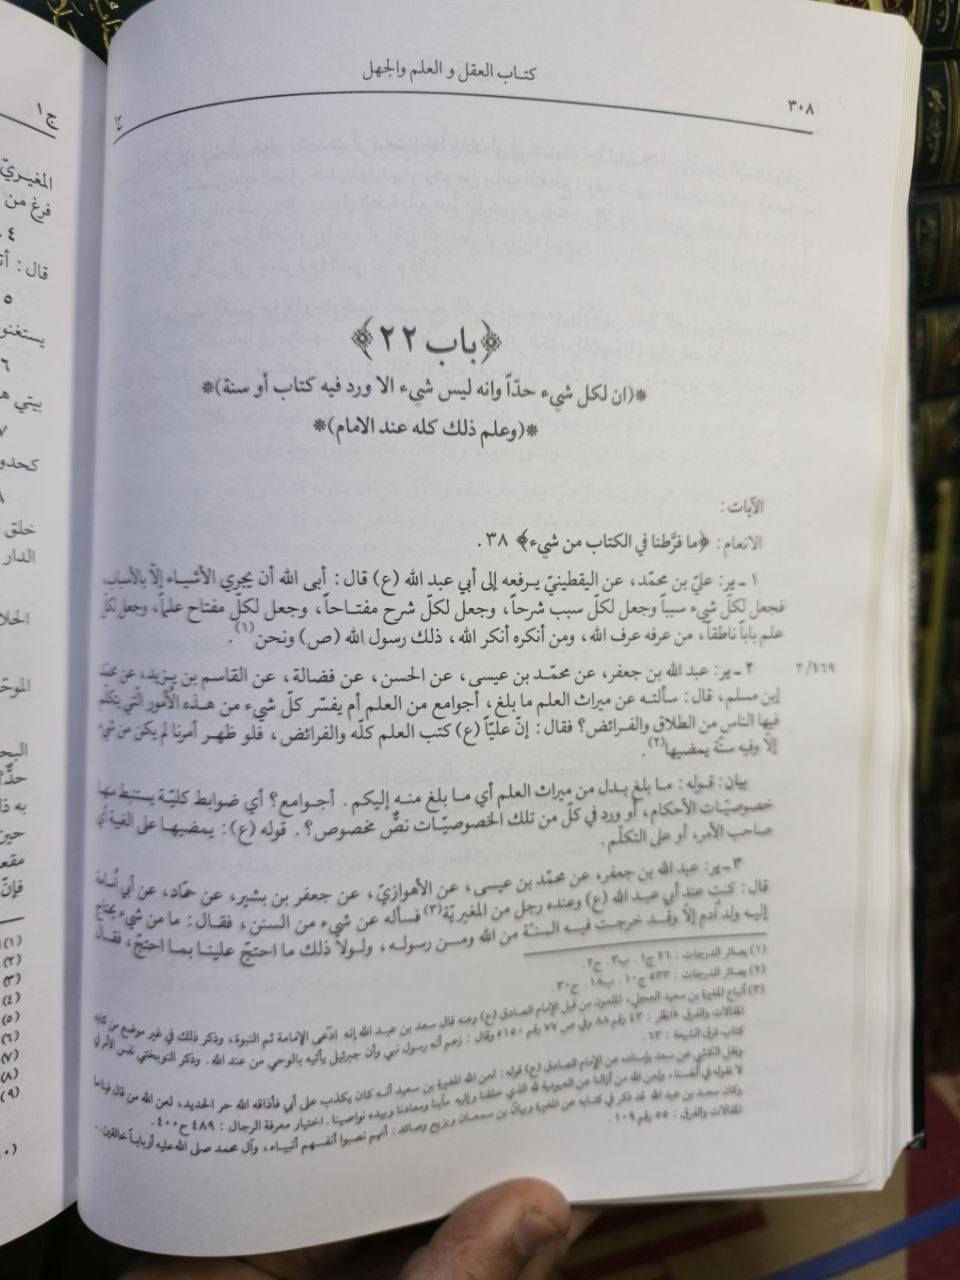 ٣٠٨
كتاب العقل و العلم والجهل
ج١
﴿باب ٢٢﴾
*(ان لكل شيء حدّاً وانه ليس شيء الا ورد فيه كتاب أو سنة)*
*(وعلم ذلك كله عند الامام)*
الآيات :
الانعام : ﴿ما فرَّطنا في الكتاب من شيء﴾ ٣٨ .
١ ـ ير: عليّ بن محمّد، عن اليقطينيّ يرفعه إلى أبي عبد الله (ع) قال : أبى الله أن يجري الأشياء إلّا بالأسباب،
فجعل لكلّ شيء سبباً وجعل لكلّ سبب شرحاً، وجعل لكلّ شرح مفتاحاً، وجعل لكلّ مفتاح علماً، وجعل لكلّ
علم باباً ناطقاً، من عرفه عرف الله، ومن أنكره أنكر الله، ذلك رسول الله (ص) ونحن(١) .
٢/١٦٩
٢ ـ ير: عبد الله بن جعفر، عن محمّد بن عيسى، عن الحسن، عن فضالة، عن القاسم بن يزيد، عن محمّد
إبن مسلم، قال : سألته عن ميراث العلم ما بلغ، أجوامع من العلم أم يفسّر كلّ شيء من هذه الأمور الّتي يتكلّم
فيها الناس من الطلاق والفرائض؟ فقال : إنّ عليّاً (ع) كتب العلم كلّه والفرائض، فلو ظهر أمرنا لم يكن من شيء
إلّا وفيه سنّة يمضيها(٢) .
بيان : قوله : ما بلغ بدل من ميراث العلم أي ما بلغ منه إليكم . أجوامع؟ أي ضوابط كليّة يستنبط منها
خصوصيّات الأحكام، أو ورد في كلّ من تلك الخصوصيّات نصٌّ مخصوص؟ . قوله (ع) : يمضيها على الغيبة أي
صاحب الأمر، أو على التكلّم .
٣ ـ ير: عبد الله بن جعفر، عن محمّد بن عيسى، عن الأهوازيّ، عن جعفر بن بشير، عن حمّاد، عن أبي أسامة
قال : كنت عند أبي عبد الله (ع) وعنده رجل من المغيريّة(٣) فسأله عن شيء من السنن، فقال : ما من شيء يحتاج
إليه ولد آدم إلّا وقد خرجت فيه السنّة من الله ومن رسوله، ولولا ذلك ما احتجّ علينا بما احتجّ، فقال
(١) بصائر الدرجات : ٢٦ ج١ . ب٣ . ح٢ .
(٢) بصائر الدرجات : ٥٣٣ ج١٠ . ب١٨ . ح٣٠ .
(٣) أتباع المغيرة بن سعيد العجلي، الملعون من قبل الإمام الصادق (ع) وعنه قال سعد بن عبد الله إنه إدّعى الإمامة ثم النبوة، وذكر ذلك في غير موضع من كتابه
المقالات والفرق فانظر : ٤٣ رقم ٨٨ وفي ص ٧٧ رقم ١٥٠ وقال : زعم أنه رسول نبي وأن جبرئيل يأتيه بالوحي من عند الله . وذكر النوبختي نفس الأمر في
كتاب فرق الشيعة : ٦٣ .
ونقل الكشي عن سعد بإسناده عن الإمام الصادق (ع) قوله : لعن الله المغيرة بن سعيد أنه كان يكذب على أبي فأذاقه الله حر الحديد، لعن الله من قال فينا ما
لا نقوله في أنفسنا، ولعن الله من أزالنا عن العبودية لله الذي خلقنا وإليه مآبنا ومعادنا وبيده نواصينا . اختيار معرفة الرجال : ٤٨٩ ح٤٠٠ .
وكان سعد بن عبد الله قد ذكر في كتابه عن المغيرة وبيان بن سمعان وبزيع وصائد : أنهم نصبوا أنفسهم أنبياء، وآل محمد صلى الله عليه أرباباً خالقين . .
المقالات والفرق : ٥٥ رقم ١٠٩ .
ج١
المغيريّ
فرغ من
٤
قال : أ
٥
يستغنو
٦
بيتي ه
٧
كحدو
٨
خلق
الدار
الحلا
الموحّ
البح
حدّ
به ذا
حين
مقعـ
فإنّ
(١)
(٢)
(٣)
(٤)
(٥)
(٦)
(٧)
(٨)
(٩)